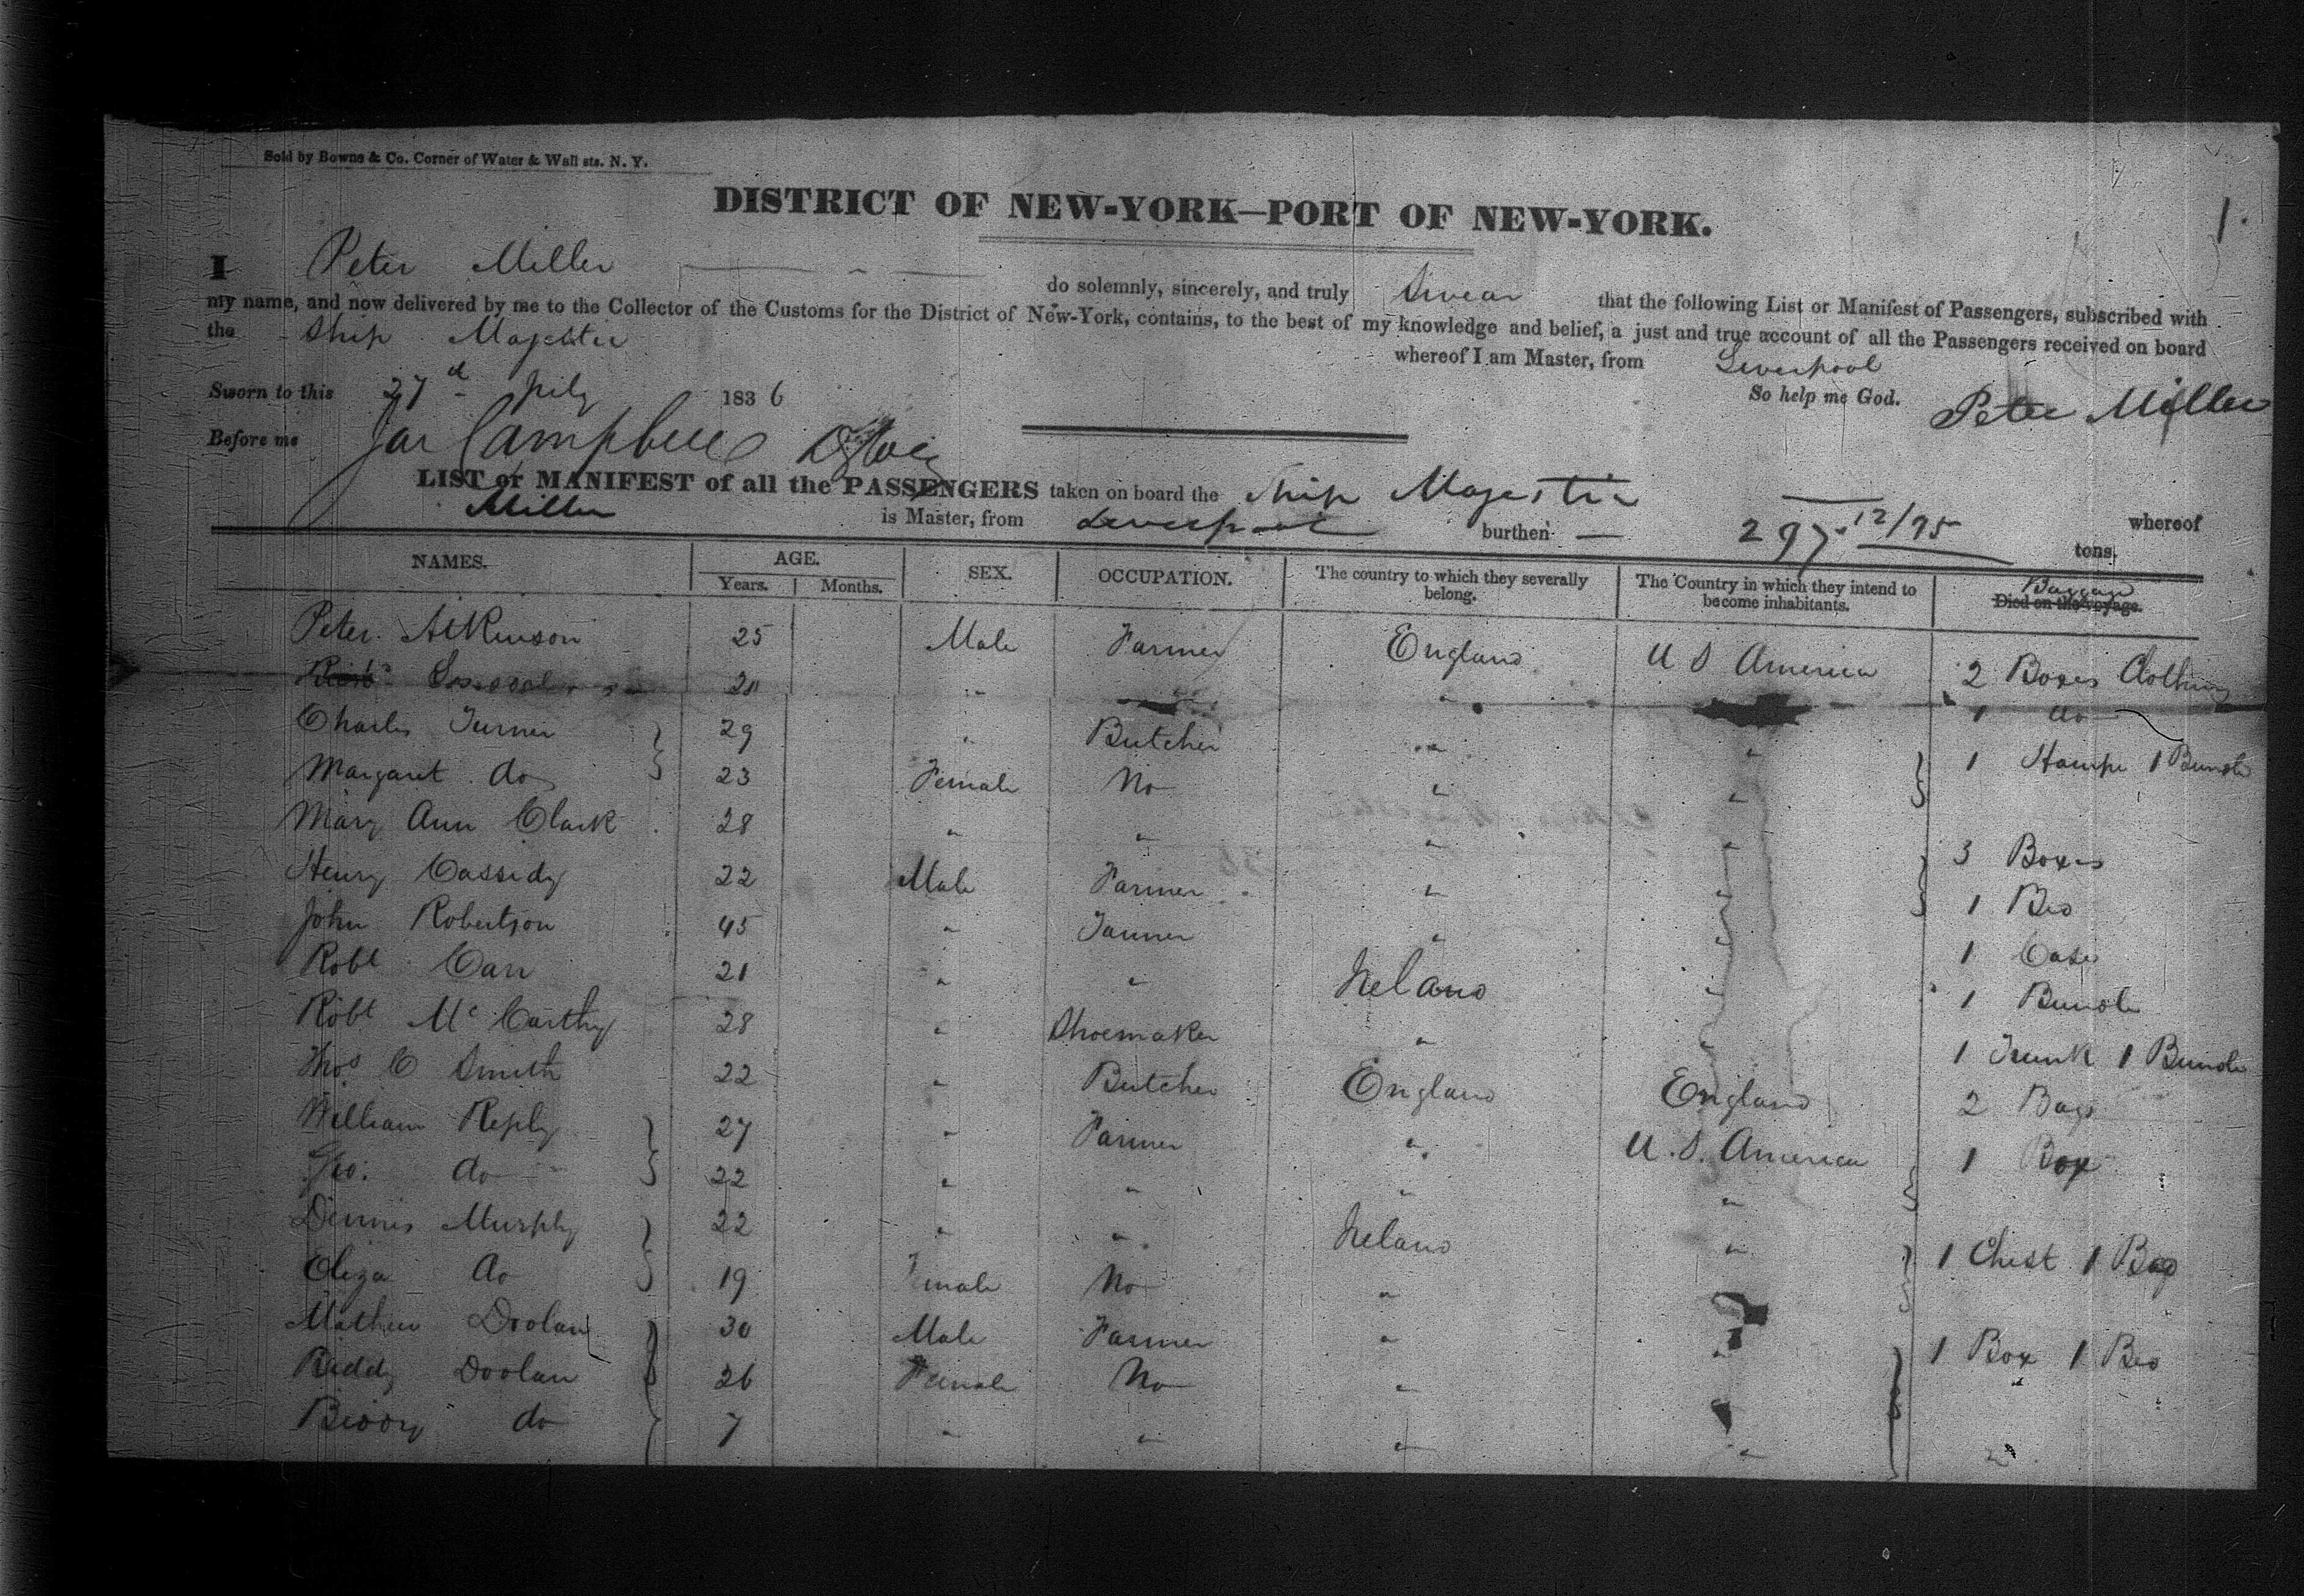 1.
Sold by Bowne & Co. Corner of Water & Wall sts. N. Y.
DISTRICT OF NEW-YORK—PORT OF NEW-YORK.
I Peter Miller do solemnly, sincerely, and truly Swear that the following List or Manifest of Passengers, subscribed with
my name, and now delivered by me to the Collector of the Customs for the District of New-York, contains, to the best of my knowledge and belief, a just and true account of all the Passengers received on board
the Ship Majestic whereof I am Master, from Liverpool
Sworn to this 27th July 1836 So help me God. Peter Miller
Before me Jas Campbell
LIST or MANIFEST of all the PASSENGERS taken on board the Ship Majestic whereof
Miller is Master, from Liverpool burthen 297 12/95 tons.
NAMES. AGE. SEX. OCCUPATION. The country to which they severally belong. The Country in which they intend to become inhabitants. Baggage Died on the voyage.
Years. Months.
Peter Atkinson 25 Male Farmer England U S America 2 Boxes Clothing
20 " " 1 do
Charles Turner 29 " Butcher " " 1 Hamper 1 Bundle
Margaret do 23 Female No " "
Mary Ann Clark 28 " " " " 3 Boxes
Henry Cassidy 22 Male Farmer " " 1 Bed
John Robertson 45 " Tanner " " 1 Case
Robt Carr 21 " " Ireland " 1 Bundle
Robt Mc Carthy 28 " Shoemaker " " 1 Trunk 1 Bundle
Thos C Smith 22 " Butcher England England 2 Bags
William Reply 27 " Farmer " U. S. America 1 Box
Geo. do 22 " " " "
Dennis Murphy 22 " " Ireland " 1 Chest 1 Bag
Eliza do 19 Female No "
Mathew Doolan 30 Male Farmer " " 1 Box 1 Bed
Biddy Doolan 26 Female No " "
do 7 " " " "